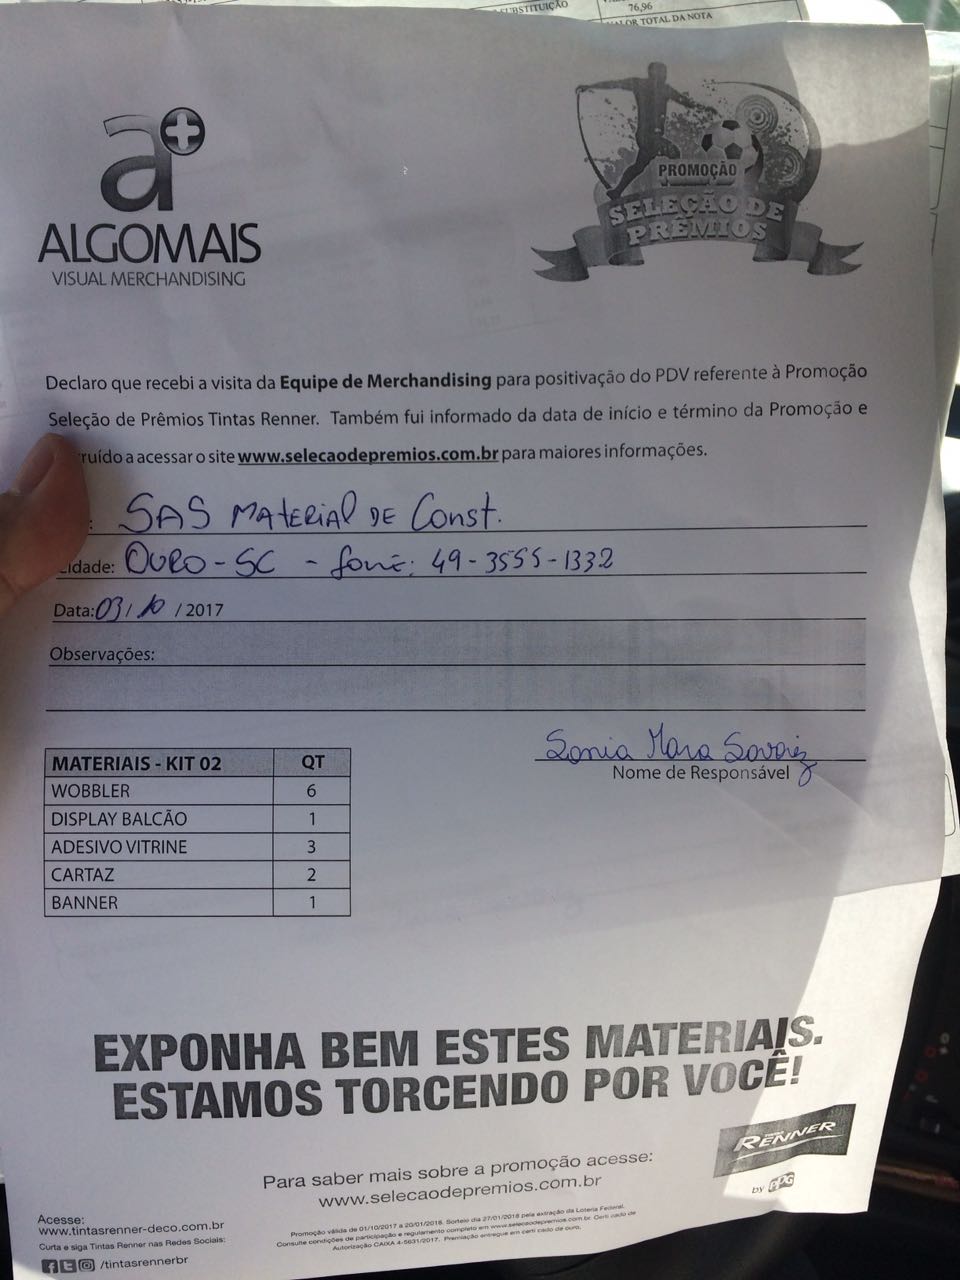 SUBSTITUIÇÃO
76,96
VALOR TOTAL DA NOTA
a+
ALGOMAIS
VISUAL MERCHANDISING
PROMOÇÃO
SELEÇÃO DE
PRÊMIOS
Declaro que recebi a visita da Equipe de Merchandising para positivação do PDV referente à Promoção
Seleção de Prêmios Tintas Renner. Também fui informado da data de início e término da Promoção e
ruído a acessar o site www.selecaodepremios.com.br para maiores informações.
: SAS Material de Const.
Cidade: OURO-SC - fone: 49-3555-1332
Data: 03/10/2017
Observações:
Sonia Mara Savariz
Nome de Responsável
MATERIAIS - KIT 02 QT
WOBBLER 6
DISPLAY BALCÃO 1
ADESIVO VITRINE 3
CARTAZ 2
BANNER 1
EXPONHA BEM ESTES MATERIAIS.
ESTAMOS TORCENDO POR VOCÊ!
TINTAS RENNER
by PPG
Para saber mais sobre a promoção acesse:
www.selecaodepremios.com.br
Acesse:
www.tintasrenner-deco.com.br
Curta e siga Tintas Renner nas Redes Sociais:
/tintasrennerbr
Promoção válida de 01/10/2017 a 20/01/2018. Sorteio dia 27/01/2018 pela extração da Loteria Federal.
Consulte condições de participação e regulamento completo em www.selecaodepremios.com.br. Certi cado de
Autorização CAIXA 4-5631/2017. Premiação entregue em certi cado de ouro.